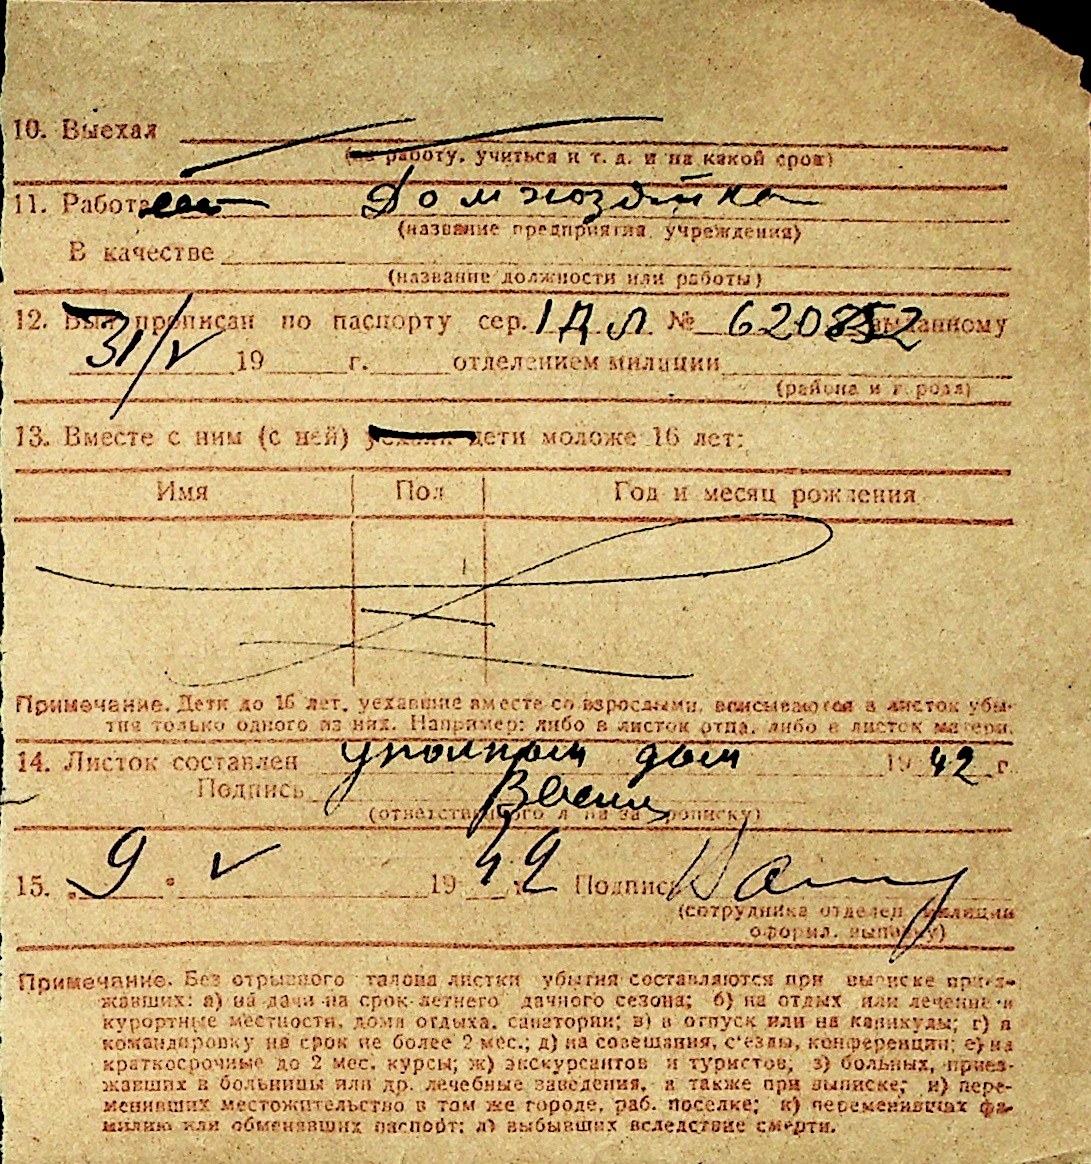 10. Выехал
(на работу, учиться и т. д. и на какой срок)
11. Работа Домхозяйка
(название предприятия, учреждения)
В качестве
(название должности или работы)
12. Был прописан по паспорту сер. I Д Л № 620852 выданному
31/V 19 г. отделением милиции
(района и города)
13. Вместе с ним (с ней) уехали дети моложе 16 лет:
Имя Пол Год и месяц рождения
Примечание. Дети до 16 лет, уехавшие вместе со взрослыми, вписываются в листок убы-
тия только одного из них. Например: либо в листок отца, либо в листок матери.
14. Листок составлен дом 1942 г.
Подпись
(ответственного л на за прописку)
15. 9 V 1942 Подпись
(сотрудника отделен. милиции
оформл. выписку)
Примечание. Без отрывного талона листки убытия составляются при выписке приез-
жавших: а) на дачи на срок летнего дачного сезона; б) на отдых или лечение в
курортные местности, дома отдыха, санатории; в) в отпуск или на каникулы; г) в
командировку на срок не более 2 мес.; д) на совещания, с'езды, конференции; е) на
краткосрочные до 2 мес. курсы; ж) экскурсантов и туристов; з) больных, приез-
жавших в больницы или др. лечебные заведения, а также при выписке; и) пере-
менивших местожительство в том же городе, раб. поселке; к) переменивших фа-
милию или обменявших паспорт; л) выбывших вследствие смерти.